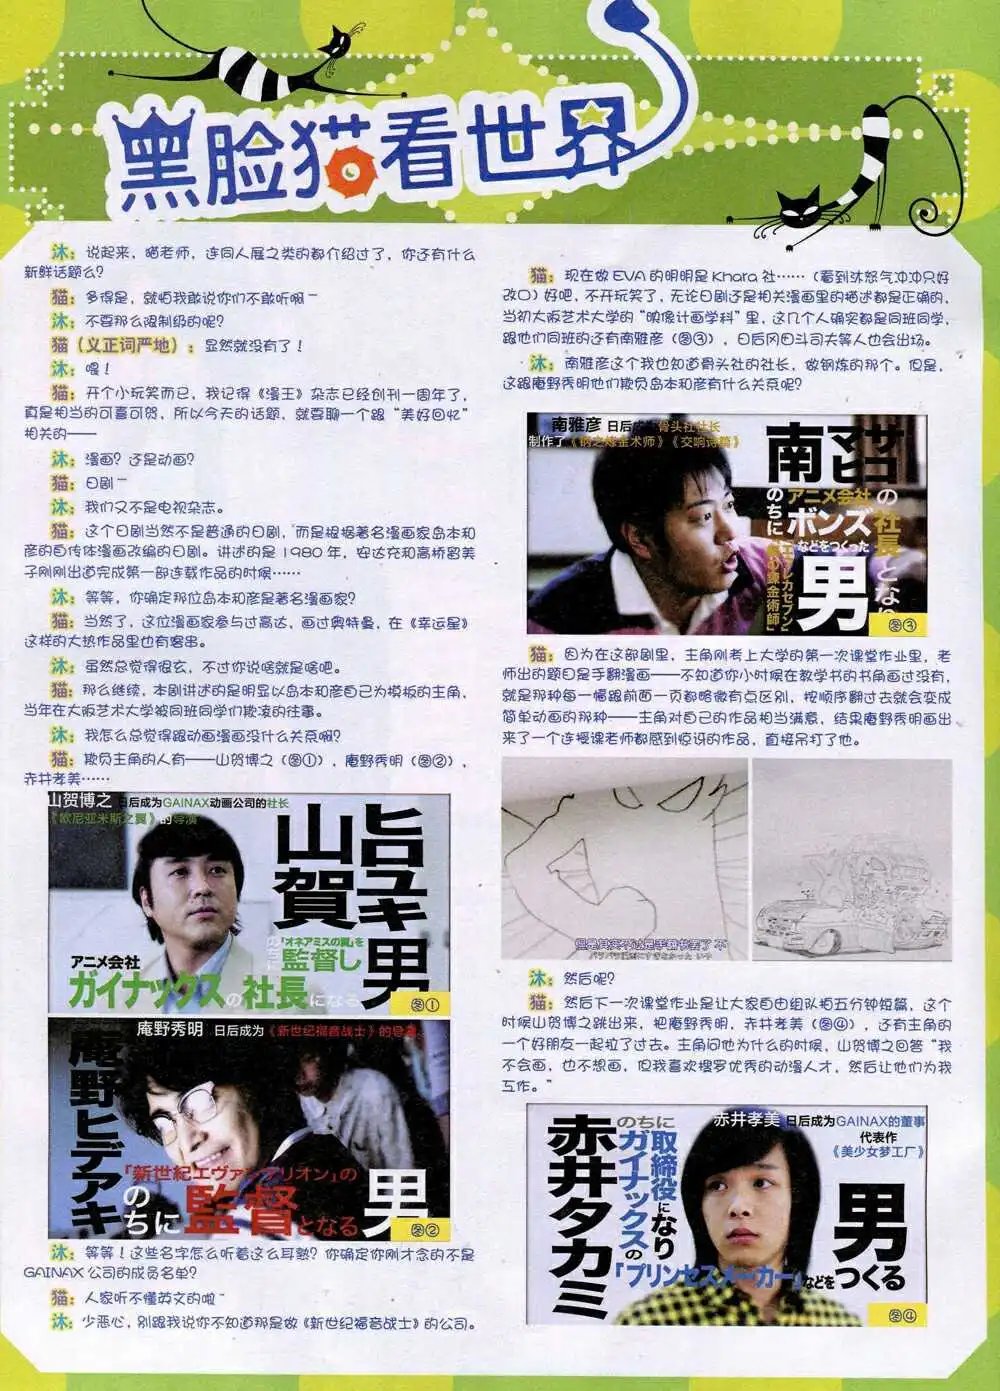 黑脸猫看世界
沐：说起来，喵老师，连同人展之类的都介绍过了，你还有什么
新鲜话题么？
猫：多得是，就怕我敢说你们不敢听啊~
沐：不要那么限制级的呢？
猫（义正词严地）：显然就没有了！
沐：喂！
猫：开个小玩笑而已，我记得《漫王》杂志已经创刊一周年了，
真是相当的可喜可贺，所以今天的话题，就要聊一个跟“美好回忆”
相关的——
沐：漫画？还是动画？
猫：日剧~
沐：我们又不是电视杂志。
猫：这个日剧当然不是普通的日剧，而是根据著名漫画家岛本和
彦的自传体漫画改编的日剧。讲述的是1980年，安达充和高桥留美
子刚刚出道完成第一部连载作品的时候……
沐：等等，你确定那位岛本和彦是著名漫画家？
猫：当然了，这位漫画家参与过高达，画过奥特曼，在《幸运星》
这样的大热作品里也有客串。
沐：虽然总觉得很玄，不过你说啥就是啥吧。
猫：那么继续，本剧讲述的是明显以岛本和彦自己为模板的主角，
当年在大阪艺术大学被同班同学们欺凌的往事。
沐：我怎么总觉得跟动画漫画没什么关系啊？
猫：欺负主角的人有——山贺博之（图①），庵野秀明（图②），
赤井孝美……
山贺博之 日后成为GAINAX动画公司的社长
《欧尼亚米斯之翼》的导演
山賀ヒロユキ
「オネアミスの翼」を
監督し
アニメ会社
ガイナックスの社長になる
男
图①
庵野秀明 日后成为《新世纪福音战士》的导演
庵野ヒデアキ
「新世紀エヴァンゲリオン」の
のちに監督となる男
图②
沐：等等！这些名字怎么听着这么耳熟？你确定你刚才念的不是
GAINAX公司的成员名单？
猫：人家听不懂英文的啦~
沐：少恶心，别跟我说你不知道那是做《新世纪福音战士》的公司。
猫：现在做EVA的明明是Khara社……（看到沐怒气冲冲只好
改口）好吧，不开玩笑了，无论日剧还是相关漫画里的描述都是正确的，
当初大阪艺术大学的“映像计画学科”里，这几个人确实都是同班同学，
跟他们同班的还有南雅彦（图③），日后冈田斗司夫等人也会出场。
沐：南雅彦这个我也知道骨头社的社长，做钢炼的那个。但是，
这跟庵野秀明他们欺负岛本和彦有什么关系呢？
南雅彦 日后成为骨头社社长
制作了《钢之炼金术师》《交响诗篇》
南マサヒコ
のちに
アニメ会社
ボンズの社長となり
などをつくった
男
图③
猫：因为在这部剧里，主角刚考上大学的第一次课堂作业里，老
师出的题目是手翻漫画——不知道你小时候在教学书的书角画过没有，
就是那种每一幅跟前面一页都略微有点区别，按顺序翻过去就会变成
简单动画的那种——主角对自己的作品相当满意，结果庵野秀明画出
来了一个连授课老师都感到惊讶的作品，直接吊打了他。
沐：然后呢？
猫：然后下一次课堂作业是让大家自由组队拍五分钟短篇，这个
时候山贺博之跳出来，把庵野秀明，赤井孝美（图④），还有主角的
一个好朋友一起拉了过去。主角问他为什么的时候，山贺博之回答“我
不会画，也不想画，但我喜欢搜罗优秀的动漫人才，然后让他们为我
工作。”
赤井孝美 日后成为GAINAX的董事
代表作
《美少女梦工厂》
赤井タカミ
のちに
ガイナックスの
取締役になり
「プリンセスメーカー」などを
つくる
男
图④